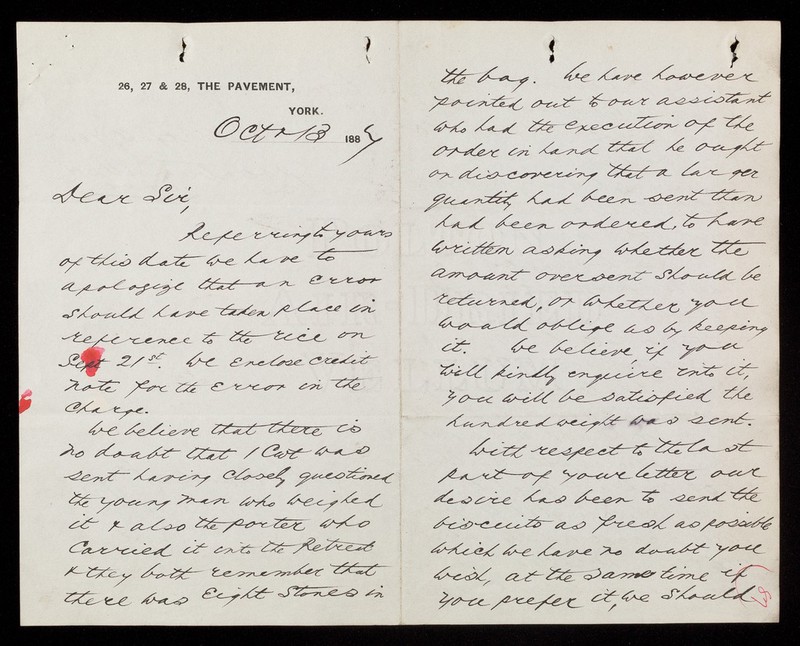 26, 27 & 28, THE PAVEMENT,
YORK.
Oct 13 1887
Dear Sir,
Referring to yours
of this date we have to
apologize that an error
should have taken place in
reference to the rice on
Sept 21st. We enclose credit
note for the error in the
charge.
We believe that there is
no doubt that 1 Cwt was
sent having closely questioned
the young man who weighed
it & also the porter who
carried it into the Retreat
& they both remember that
there was Eight Stones in
the bag. We have however
pointed out to our assistant
who had the execution of the
order in hand that he ought
on discovering that a larger
quantity had been sent than
had been ordered, to have
written asking whether the
amount oversent should be
returned, or whether you
would oblige us by keeping
it. We believe, if you
will kindly enquire into it,
you will be satisfied the
hundredweight was sent.
With respect to the last
part of your letter our
desire has been to send the
biscuits as fresh as possible
which we have no doubt you
wish, at the same time if
you prefer it, we should